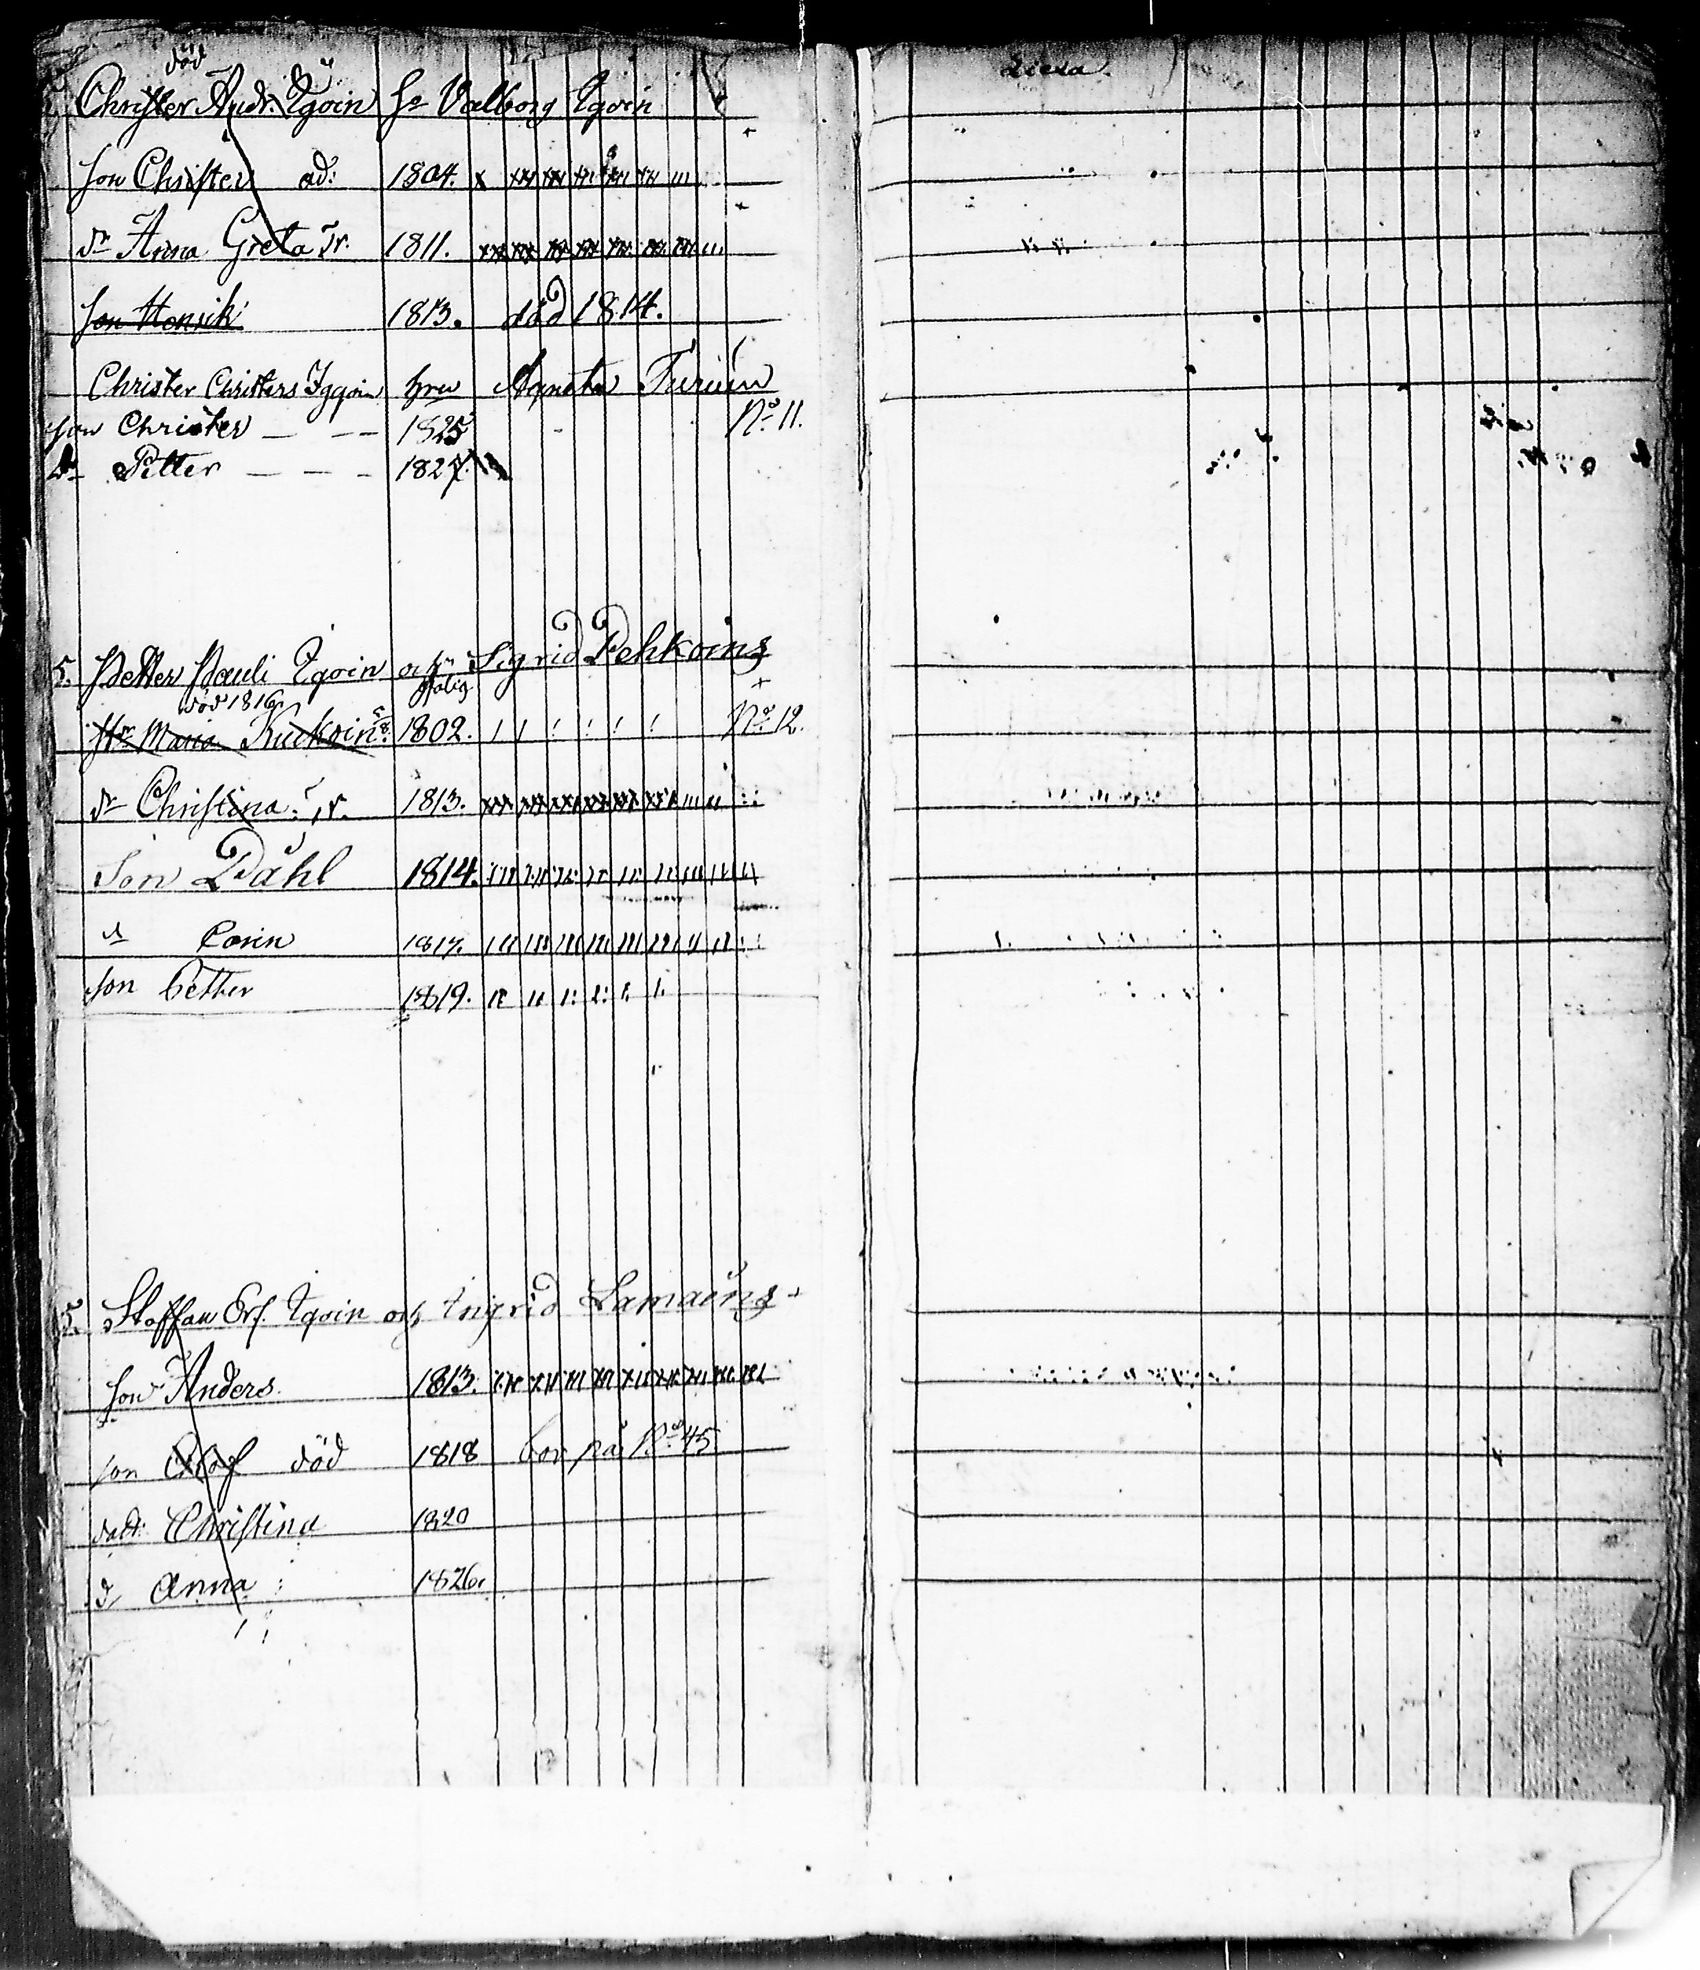 död
Christer Andr. Igoin Ha Valborg Igoin
son Christer ad: 1804.
dr Anna Greta 1811.
son Henrik 1813. död 1814.
Christer Christers Iggoin hru Agneta Turiun
son Christer — — — 1825 No 11.
Dn Petter — — — 1827.
5. Petter Pauli Igoin och Sigrid Pehkoing
död 1816
Maria Kuckoin 1802. No 12.
dr Christina 1813.
Son Påhl 1814.
d Carin 1817.
son Petter 1819.
5. Staffan Ers. Igoin och Ingrid Lamaing
son Anders 1813.
son Olof död 1818 bor på No 45
dotr. Christina 1820
d Anna 1826.